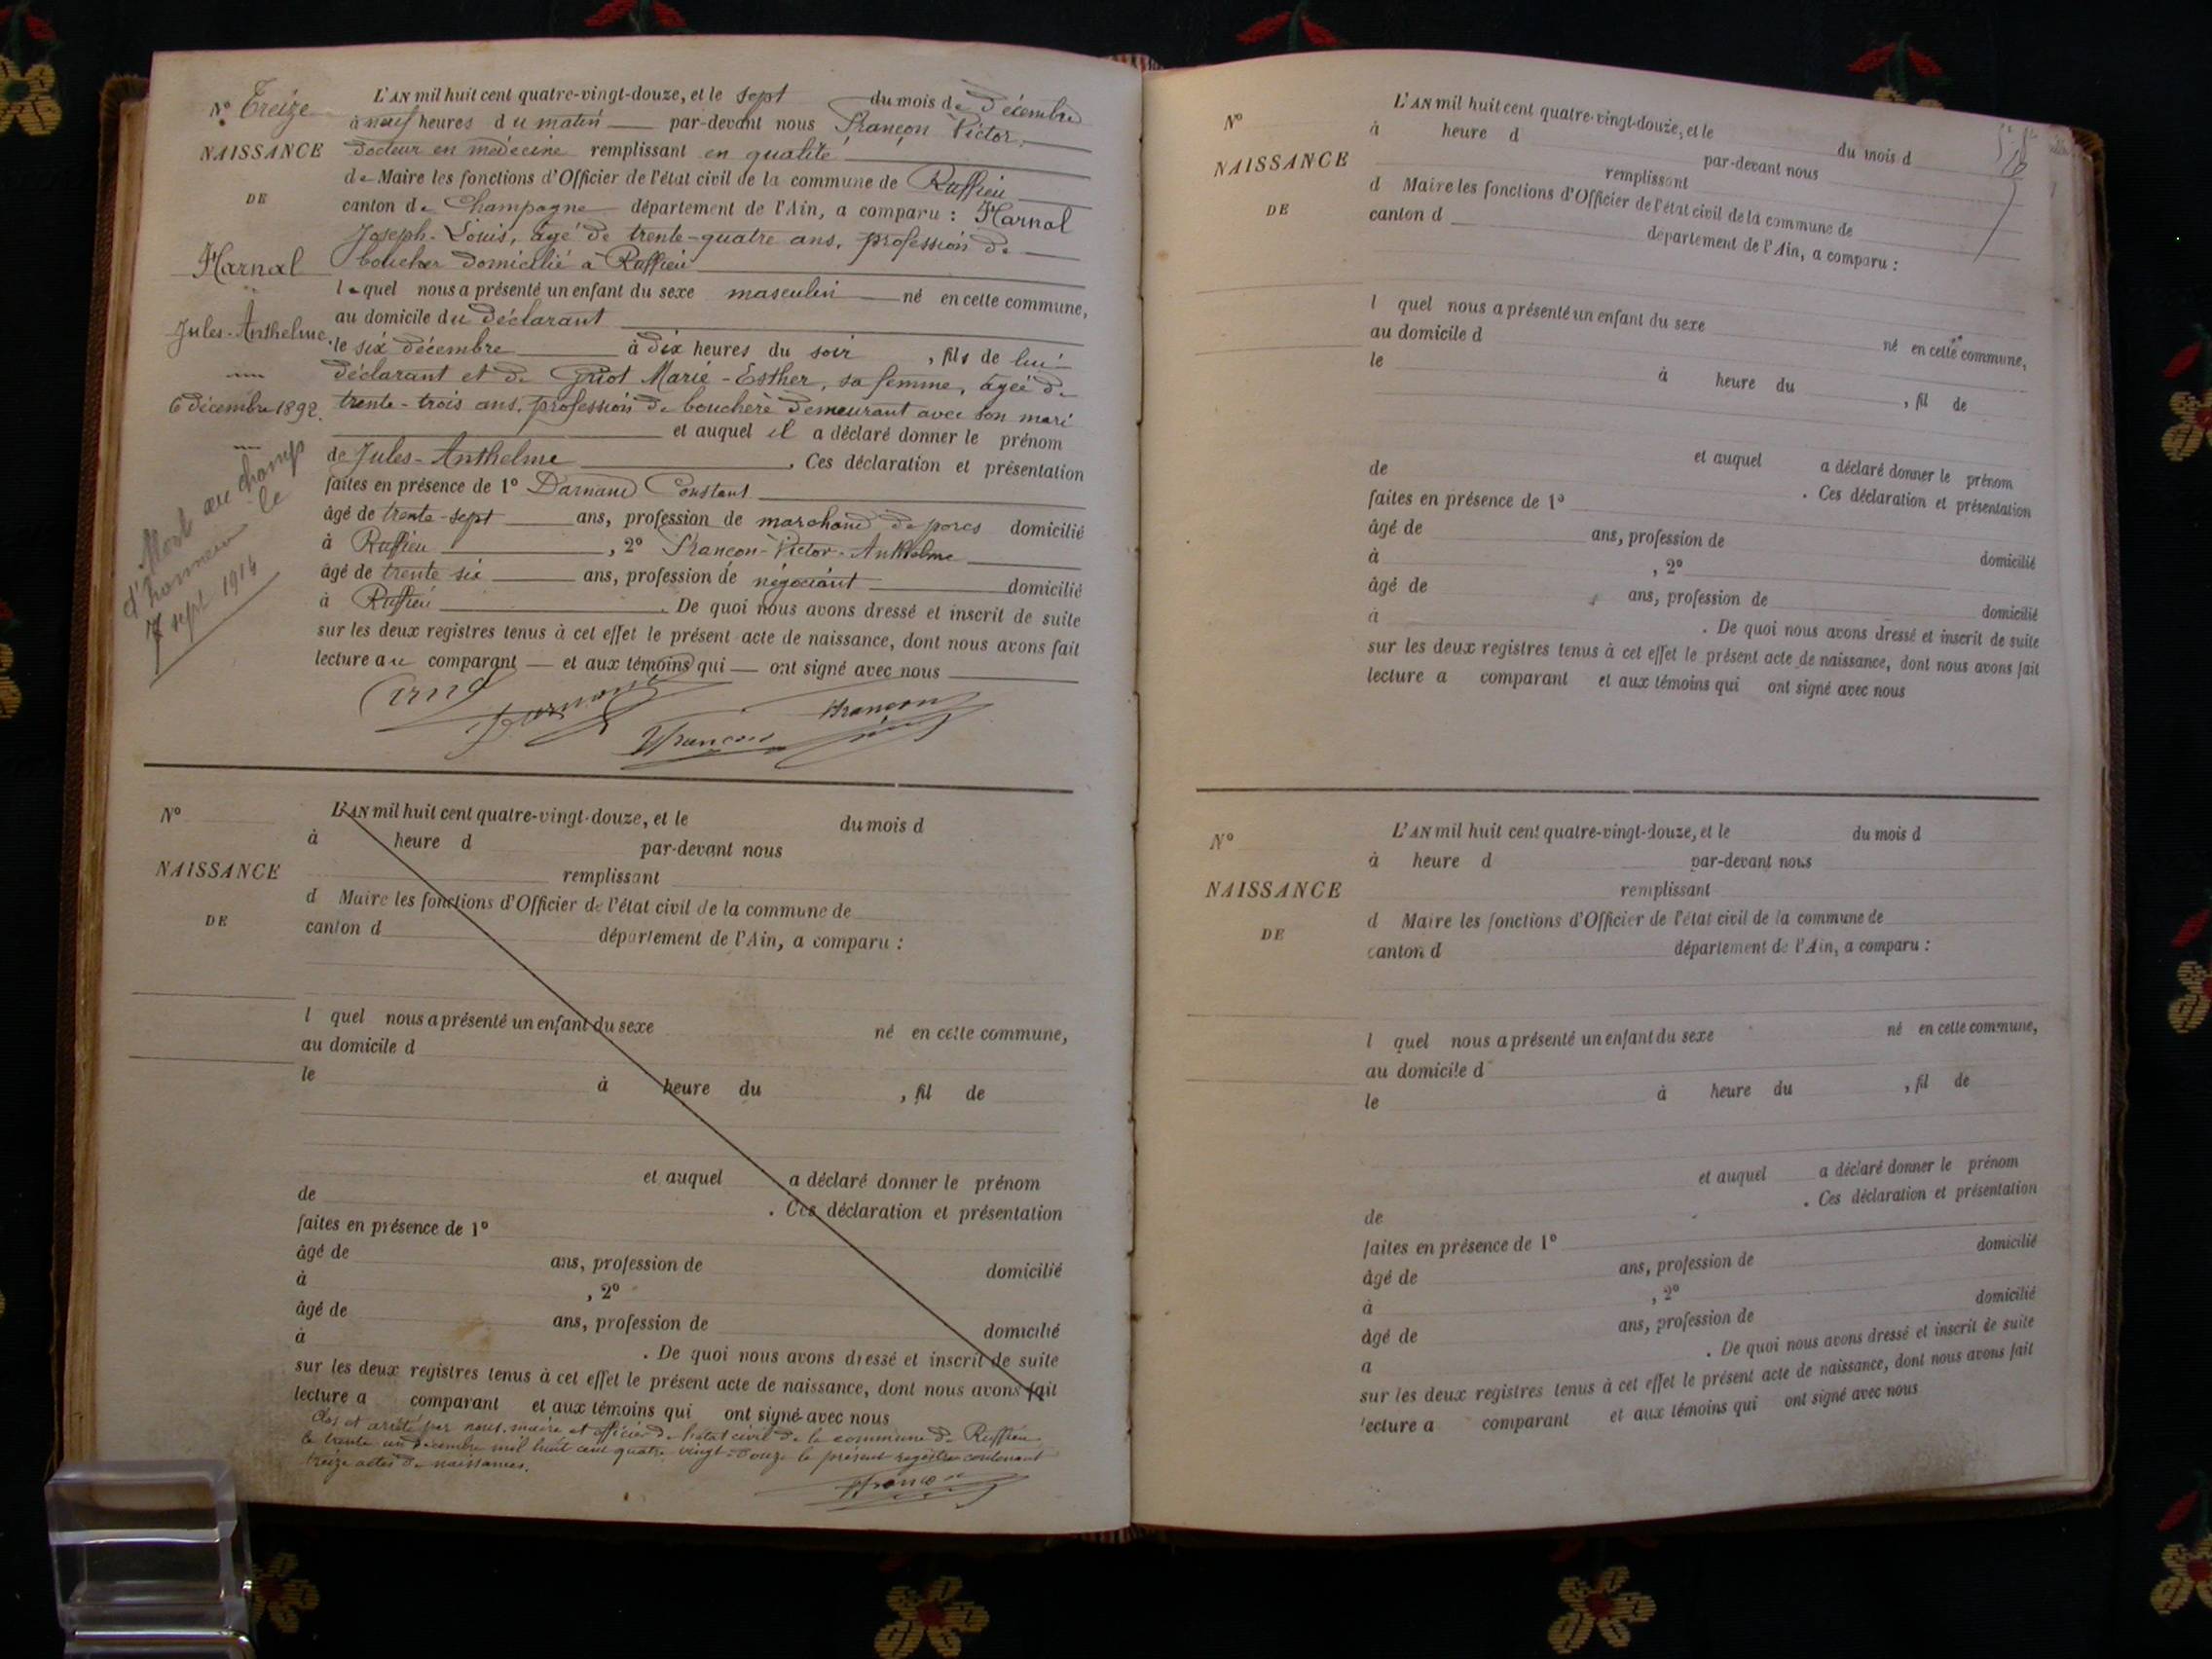 Nº Treize
NAISSANCE
DE
Harnal
Jules-Anthelme
6 décembre 1892.
Mort au champ
d'honneur le
7 sept 1914
L'AN mil huit cent quatre-vingt-douze, et le sept du mois de Décembre
à neuf heures du matin par-devant nous Françon Victor,
docteur en médecine remplissant en qualité
de Maire les fonctions d'Officier de l'état civil de la commune de Ruffieu
canton de Champagne département de l'Ain, a comparu : Harnal
Joseph-Louis, âgé de trente-quatre ans, profession de
boucher domicilié à Ruffieu
lequel nous a présenté un enfant du sexe masculin né en cette commune,
au domicile du déclarant
le six décembre à dix heures du soir, fils de lui
déclarant et de Griot Marie-Esther, sa femme, âgée de
trente-trois ans, profession de bouchère demeurant avec son mari
et auquel il a déclaré donner le prénom
de Jules-Anthelme. Ces déclaration et présentation
faites en présence de 1º Darnand Constant
âgé de trente-sept ans, profession de marchand de porcs domicilié
à Ruffieu, 2º Françon-Victor-Anthelme
âgé de trente six ans, profession de négociant domicilié
à Ruffieu. De quoi nous avons dressé et inscrit de suite
sur les deux registres tenus à cet effet le présent acte de naissance, dont nous avons fait
lecture au comparant et aux témoins qui ont signé avec nous
Françon
Françon
Nº
NAISSANCE
DE
L'AN mil huit cent quatre-vingt-douze, et le du mois d
à heure d par-devant nous
remplissant
d Maire les fonctions d'Officier de l'état civil de la commune de
canton d département de l'Ain, a comparu :
l quel nous a présenté un enfant du sexe né en cette commune,
au domicile d
le à heure du , fil de
et auquel a déclaré donner le prénom
de . Ces déclaration et présentation
faites en présence de 1º
âgé de ans, profession de domicilié
à , 2º
âgé de ans, profession de domicilié
à . De quoi nous avons dressé et inscrit de suite
sur les deux registres tenus à cet effet le présent acte de naissance, dont nous avons fait
lecture a comparant et aux témoins qui ont signé avec nous
Clos et arrêté par nous, maire et officier de l'état civil de la commune de Ruffieu
le trente un décembre mil huit cent quatre vingt-douze le présent registre contenant
treize actes de naissances.
Françon
Nº
NAISSANCE
DE
L'AN mil huit cent quatre-vingt-douze, et le du mois d
à heure d par-devant nous
remplissant
d Maire les fonctions d'Officier de l'état civil de la commune de
canton d département de l'Ain, a comparu :
l quel nous a présenté un enfant du sexe né en cette commune,
au domicile d
le à heure du , fil de
et auquel a déclaré donner le prénom
de . Ces déclaration et présentation
faites en présence de 1º
âgé de ans, profession de domicilié
à , 2º
âgé de ans, profession de domicilié
à . De quoi nous avons dressé et inscrit de suite
sur les deux registres tenus à cet effet le présent acte de naissance, dont nous avons fait
lecture a comparant et aux témoins qui ont signé avec nous
Nº
NAISSANCE
DE
L'AN mil huit cent quatre-vingt-douze, et le du mois d
à heure d par-devant nous
remplissant
d Maire les fonctions d'Officier de l'état civil de la commune de
canton d département de l'Ain, a comparu :
l quel nous a présenté un enfant du sexe né en cette commune,
au domicile d
le à heure du , fil de
et auquel a déclaré donner le prénom
de . Ces déclaration et présentation
faites en présence de 1º
âgé de ans, profession de domicilié
à , 2º
âgé de ans, profession de domicilié
a . De quoi nous avons dressé et inscrit de suite
sur les deux registres tenus à cet effet le présent acte de naissance, dont nous avons fait
lecture a comparant et aux témoins qui ont signé avec nous